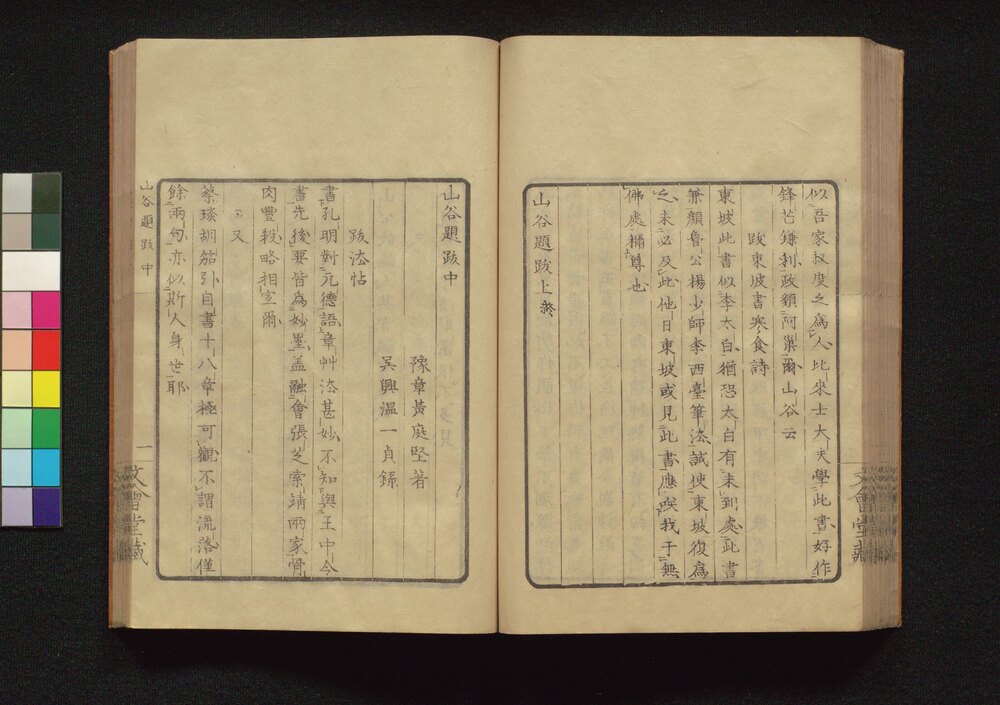 似吾家叔度之爲人比來士大夫學此書好作
鋒芒鎌利政類阿巢爾山谷云
跋東坡書寒食詩
東坡此書似李太白猶恐太白有未到處此書
兼顏魯公楊少師李西臺筆法試使東坡復爲
之未必及此他日東坡或見此書應笑我于無
佛處稱尊也
山谷題跋上終
山谷題跋中
豫章黃庭堅著
吳興溫一貞錄
跋法帖
書孔明對元德語章艸法甚妙不知與王中令
書先後要皆爲妙墨盖融會張芝索靖兩家骨
肉豐殺略相宜爾
又
蔡琰胡笳引自書十八章極可觀不謂流落僅
餘兩句亦似斯人身世耶
山谷題跋中
一
文會堂藏
文會堂藏